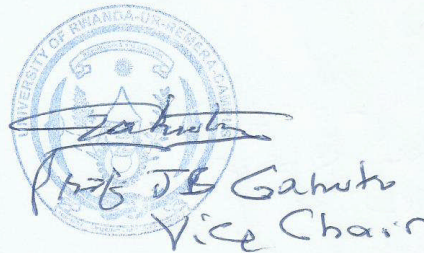 UNIVERSITY OF RWANDA-UR-REMERA-CAMPUS
Prof JB Gahutu
Vice Chair